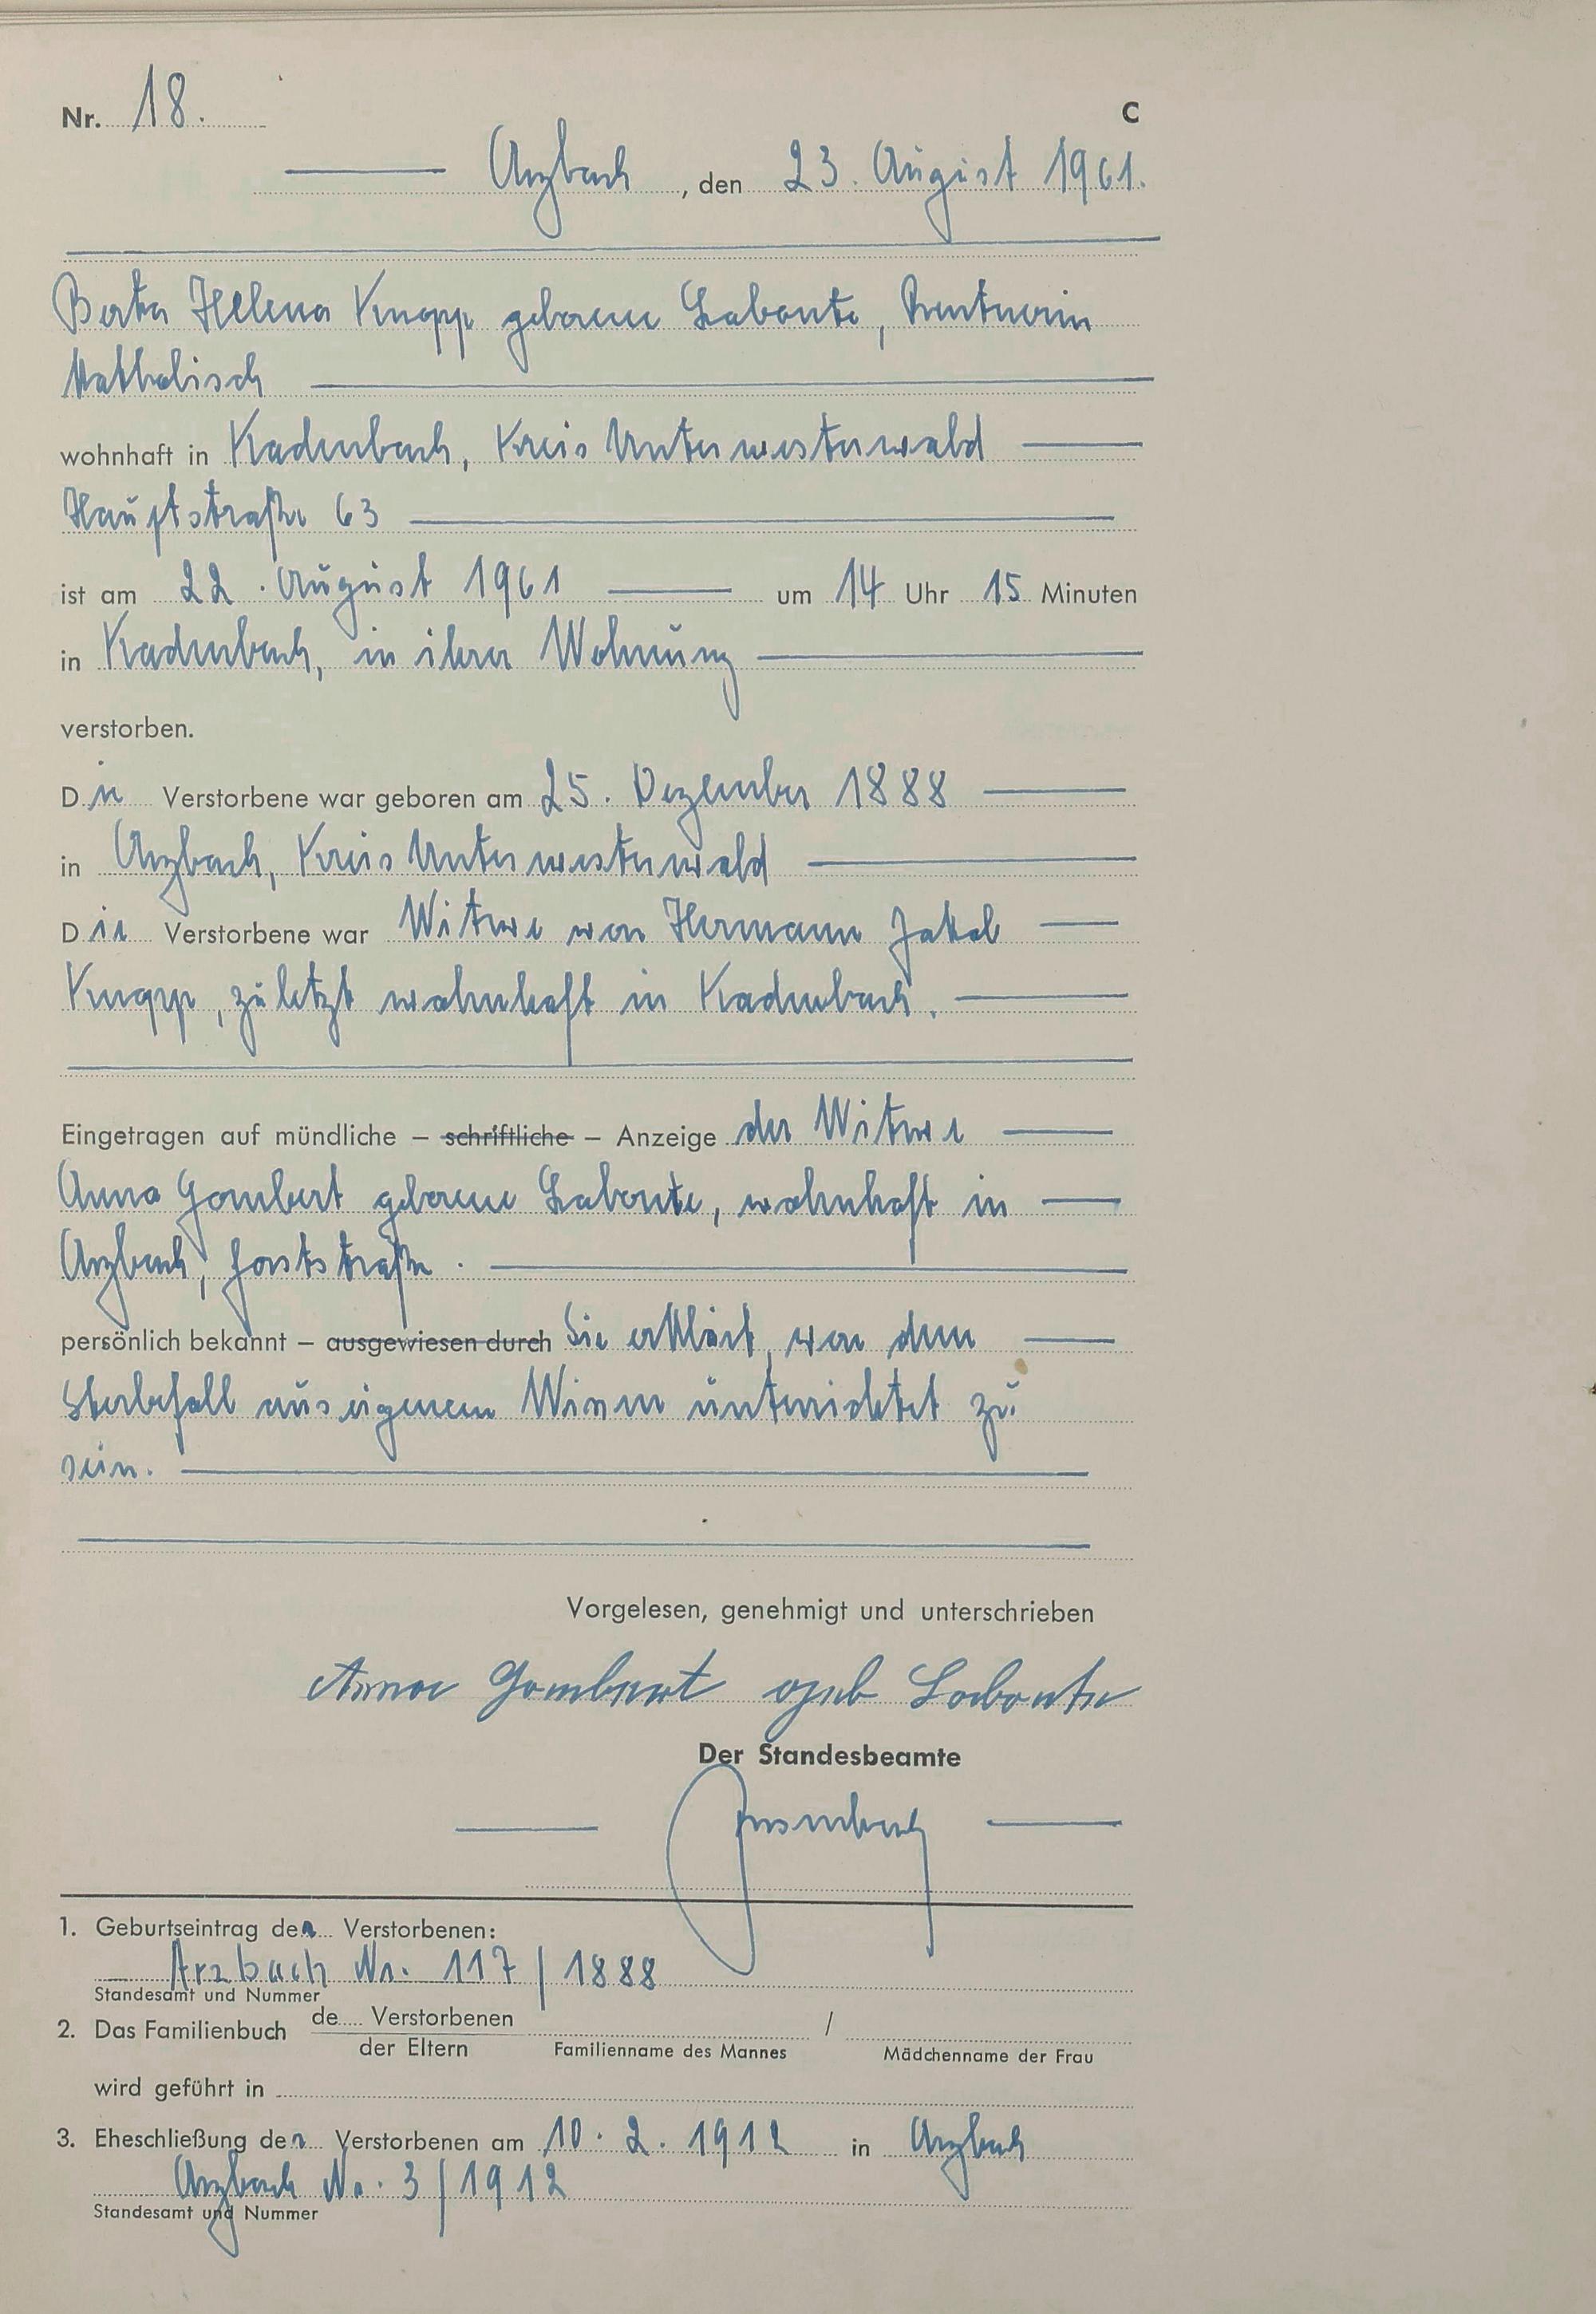 Nr. 18.
C
Arzbach, den 23. August 1961.
Berta Helena Knopp geborene Labonte, Rentnerin
katholisch
wohnhaft in Kadenbach, Kreis Unterwesterwald
Hauptstraße 63
ist am 22. August 1961 um 14 Uhr 15 Minuten
in Kadenbach, in ihrer Wohnung
verstorben.
Die Verstorbene war geboren am 25. Dezember 1888
in Arzbach, Kreis Unterwesterwald
Die Verstorbene war Witwe von Hermann Jakob
Knopp, zuletzt wohnhaft in Kadenbach.
Eingetragen auf mündliche – schriftliche – Anzeige der Witwe
Anna Gombert geborene Labonte, wohnhaft in
Arzbach, Forststraße.
persönlich bekannt – ausgewiesen durch Sie erklärt, von dem
Sterbefall aus eigenem Wissen unterrichtet zu
sein.
Vorgelesen, genehmigt und unterschrieben
Anna Gombert geb Labonte
Der Standesbeamte
1. Geburtseintrag der Verstorbenen:
Arzbach Nr. 117/1888
Standesamt und Nummer
2. Das Familienbuch de Verstorbenen /
der Eltern Familienname des Mannes Mädchenname der Frau
wird geführt in
3. Eheschließung der Verstorbenen am 10. 2. 1912 in Arzbach
Arzbach Nr. 3/1912
Standesamt und Nummer